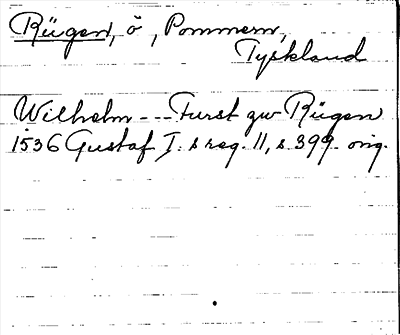 Rügen, ö, Pommern,
Tyskland
Wilhelm --- Furst zw Rügen
1536 Gustaf I. s reg. 11, s 399 orig.